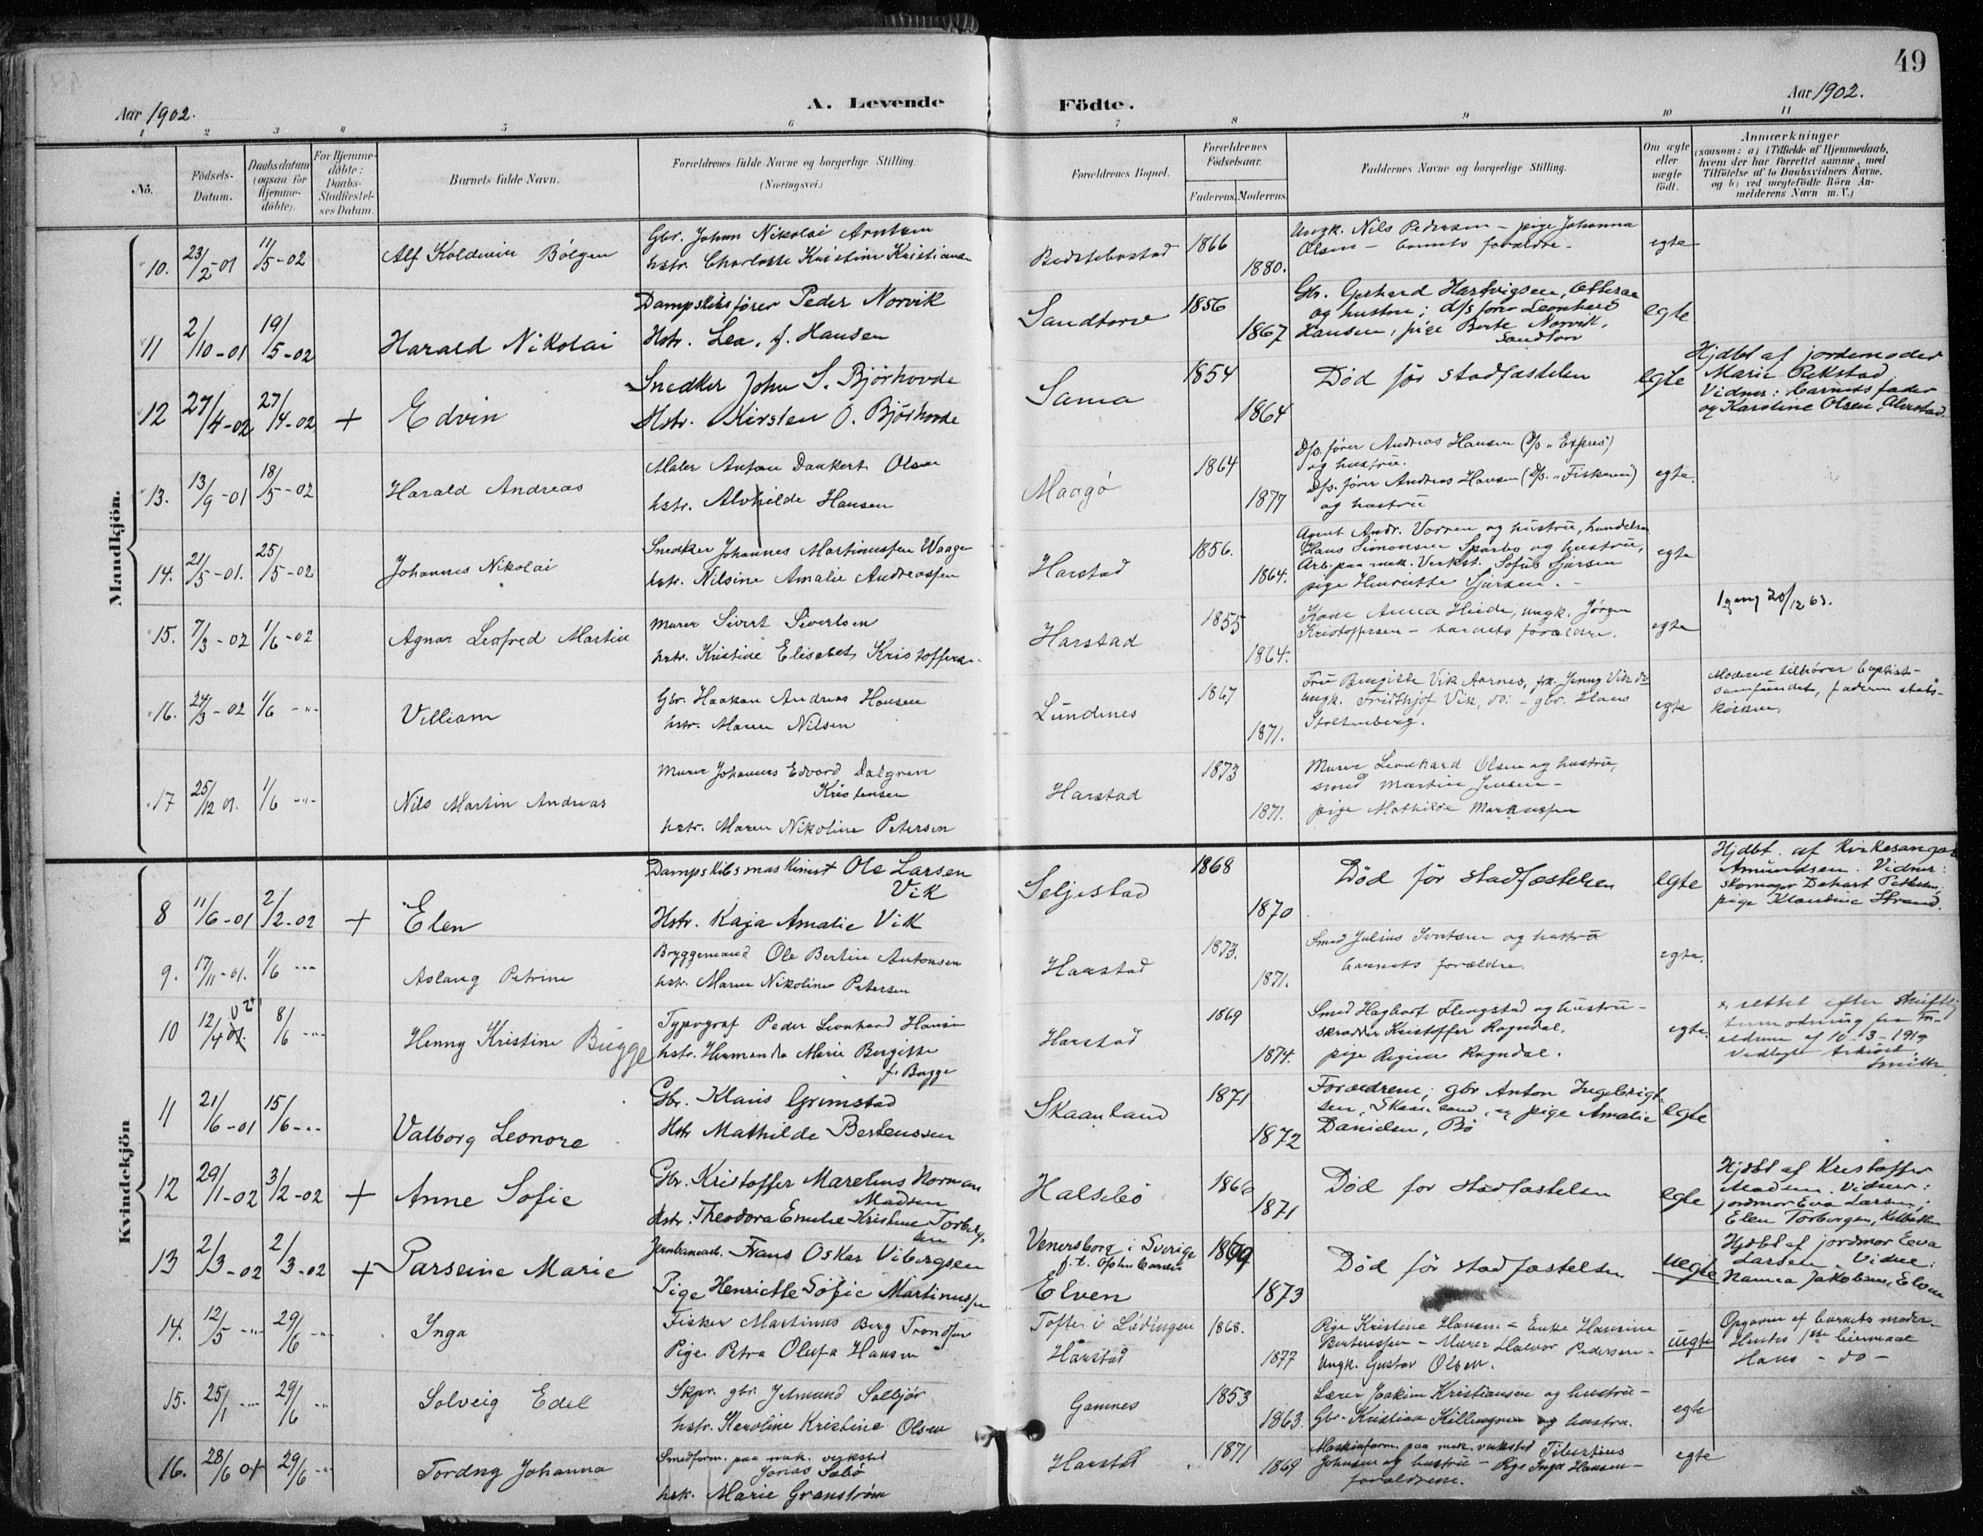 49
Aar 1902.
A. Levende Födte.
Aar 1902.
1 2 3 4 5 6 7 8 9 10 11
No.
Födsels-Datum.
Daabsdatum (ogsaa for Hjemme-döbte).
For Hjemme-döbte: Daabs-Stadfæstel-ses Datum.
Barnets fulde Navn.
Forældrenes fulde Navne og borgerlige Stilling. (Næringsvei.)
Forældrenes Bopæl.
Forældrenes Födselsaar.
Faderens. Moderens.
Faddernes Navne og borgerlig Stilling.
Om ægte eller uægte födt.
Anmærkninger
(saasom: a) i Tilfælde af Hjemmedaab, hvem der har forrettet samme, med Tilföielse af to Daabsvidners Navne. og b) ved uægtefödte Börn An-melderens Navn m. V.)
Mandkjön.
10. 23/2-01 11/5-02 Alf Koldevin Bölgen
Gbr. Johan Nikolai Arntsen
hstr. Charlotte Kristine Kristiansen
1866 1880.
Ungk. Nils Pedersen – pige Johanna
Olsen – barnets forældre. egte
11 2/10-01 19/5-02 Harald Nikolai
Dampskibsfører Peder Norvik
Hstr. Lea, f. Hansen
Sandtorv 1856 1867
Gbr. Gerhard Hartvigsen,
og hustru; d/s fører Leonhard
Hansen, pige Berte Norvik,
Sandtorv egte
12 27/4-02 27/4-02 + Edvin
Snedker John S. Bjørhovde
Hstr. Kirsten O. Bjørhovde
Sama 1854 1864
Död för stadfæstelsen egte
Hjdbt af jordemoder
Marie
Vidner: barnets fader
og Karoline Olsen,
13. 13/9-01 18/5-02 Harald Andreas
Maler Anton Dankert Olsen
hstr. Alvhilde Hansen
Maagö 1864 1877
D/s. fører Andreas Hansen (D/s „Expres“)
og hustru.
D/s. fører Andreas Hansen (D/s.
og hustru egte.
14. 21/5-01. 25/5-02 Johannes Nikolai
Snedker Johannes Martinussen Waagen
hstr. Nilsine Amalie Andreassen
Harstad 1856. 1864.
Agent Andr. og hustru,
Hans Simonsen Sparbo og hustru,
Arb. paa mek. Verkst. Sofus Sjursen
pige Henriette Sjursen. – egte
15. 7/3-02 1/6-02 Agnar Leofred Martin
Murer Sivert Sivertsen
hstr. Kristine Elisabet Kristoffersen
Harstad 1855 1864.
Kone Anna Heide, ungk. Jörgen
Kristoffersen – barnets forældre. egte
20/12 63.
16. 24/3-02 1/6 -"- Villiam
Gbr. Haakon Andreas Hansen
hstr. Maren Nilsen
Lundenes 1867 1871.
Fru Bergitte Vik Aarnes, frk. Jenny Vik
ungk. Fridthjof Vik, do. – gbr. Hans
Stoltenberg. egte
Moderen tilhører baptist-
samfundet, faderen stats-
kirken.
17 25/12 01. 1/6 -"- Nils Martin Andreas
Murer Johannes Edvard Dalgren
Kristensen
hstr. Maren Nikoline Petersen
Harstad 1873 1871.
Murer Leonhard Olsen og hustru,
smed Martin Jensen –
pige Mathilde Markussen
Kvindekjön
8 11/6-01 2/2-02 + Elen
Dampskibsmaskinist Ole Larsen
Vik
Hstr. Kaja Amalie Vik
Seljestad 1868 1870
Död för stadfæstelsen egte
Hjdbt. af Kirkesanger
Amundsen. Vidner:
skomager Pettersen,
pige Klaudine Strand.
9. 17/11-01. 1/6 -"- Aslaug Petrine
Bryggemand Ole Bertin Antonsen
hstr. Maren Nikoline Petersen
Harstad 1873. 1871.
Smed Julius og hustru
barnets forældre. egte.
10 12/4 01. 02 8/6 -"- Henny Kristine Bugge
Typograf Peder Leonhard Hansen
hstr. Hermanda Marie Bergitte
f. Bugge
Harstad 1869 1874.
Smed Hagbart Flengstad og hustru –
skrædder Kristoffer Rogndal,
pige Regine Rogndal. egte.
x rettet efter skriftlig
anmodning fra for-
ældrene af 10-3-1919
Vedlagt arkivet.
Smith.
11 21/6-01 15/6 -"- Valborg Leonore
Gbr. Klaus Grimstad
Hstr Mathilde Bertenssen
Skaanland 1871 1872
Forældrene, gbr Anton Ingebrigt-
sen, Skaanland, og pige Amalie
Danielsen, Bö egte
12 29/1-02 3/2-02 + Anne Sofie
Gbr. Kristoffer Marelius Norman
Madsen
Hstr. Theodora Emelie Kristine Torberg-
sen
Halsebö 1866 1871
Död for stadfæstelsen egte
Hjdbt af Kristoffer
Madsen. Vidner:
jordmor Eva Larsen,
Elen Torbergsen,
13 2/3-02 2/3-02 + Parseine Marie
Jernbanearb. Frans Oskar Vibergsen
Pige Henriette Sofie Martinussen
Venersborg i Sverige
Elven 1869 1873
Död för stadfæstelsen uegte
Hjdbt af jordmor Eva
Larsen. Vidne:
Nanna Jakobsen, Elven
14. 12/5 -"- 29/6 -"- Inga
Fisker Martinus Berg Trondsen
Pige Petra Olufa Hansen
Tofte i Lödingen
Harstad 1868. 1877
Pige Kristine Hansen – Enke Hansine
Berntsen – Murer Halvor Pedersen –
Ungk. Gustav Olsen. uegte
Opgaven af barnets moder –
Hendes 1ste leiermaal
Hans – do –
15. 25/1 -"- 29/6 -"- Solveig Edel
Skpr. gbr. Jetmund Solbjör
hstr. Karoline Kristine Olsen
Gamnes 1853 1863.
Lærer Joakim Kristiansen og hustru –
Gbr. Kristian Killengreen og hustru. egte
16. 28/6 01 29/6 -"- Tordny Johanna
Smedform. paa mek. verksted
Jonas Sabö
hstr. Marie Granström
Harstad 1871 1869
Maskinform. paa mek. verksted Tibertius
Johnsen og hustru – Pige Inga Hansen –
forældrene. egte